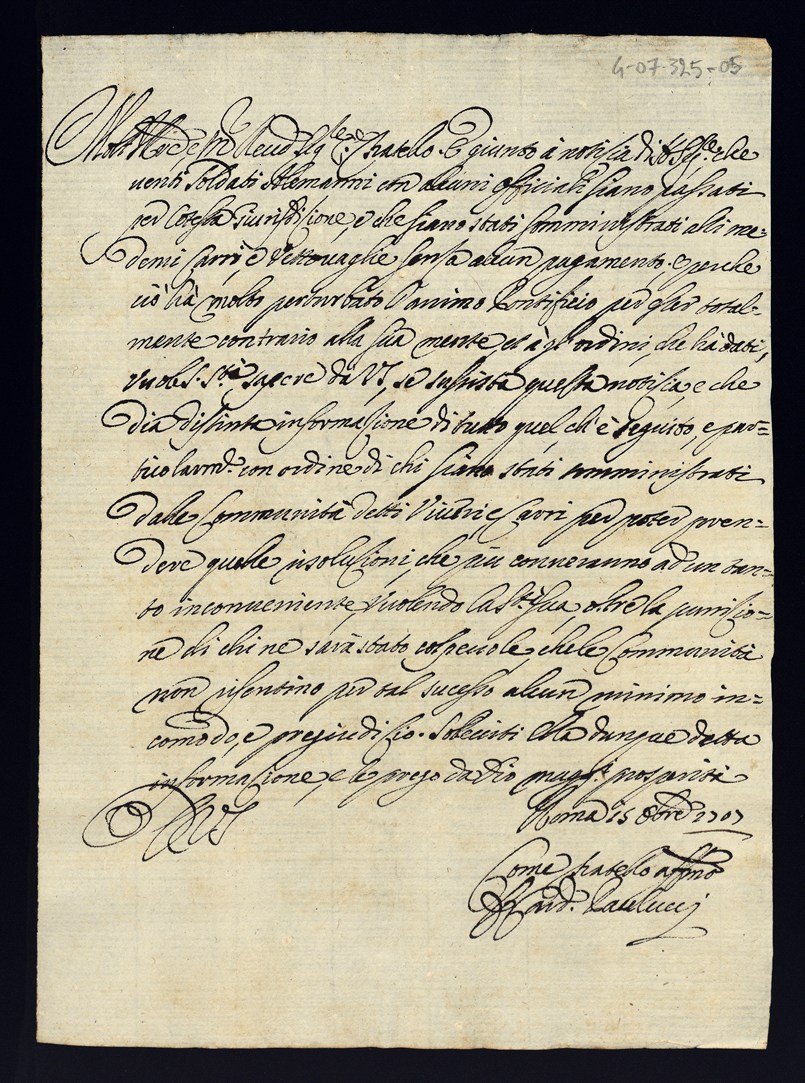 4-07-325-05
Molt Ill.re e m.to Reud. Sig.re Come Fratello. È giunto à notitia di N. Sig.re che
uenti Soldati Alemanni con alcuni Officiali siano passati
per cotesta Giurisdizione, e che siano stati somministrati alli me=
demi Carri e Vettouaglie senza alcun pagamento. e perche
ciò hà molto perturbato l'animo Pontificio per esser total=
mente contrario alla sua mente, et à gl'ordini, che hà dati,
vuole S. S.tà sapere da VS, se sussista questa notitia, e che
dia distinta informazione di tutto quel ch'è seguito, e par=
ticolarm.te con ordine di chi siano stati somministrati
dalle Communità detti Viueri e Carri per poter pren=
dere quelle risoluzioni, che più conueranno ad un tan=
to inconueniente, Vuolendo la S.tà Sua, oltre la punizio=
ne di chi ne sarà stato colpeuole, che le Communità
non risentino per tal sucesso alcun minimo in=
comodo, e pregiudizio. Solleciti Ella dunque detta
informazione, e le prego da Dio magg.ri prosperità
Roma 15 8bre 1707
Di VS
Come fratello aff.mo
F. Card. Paulucci